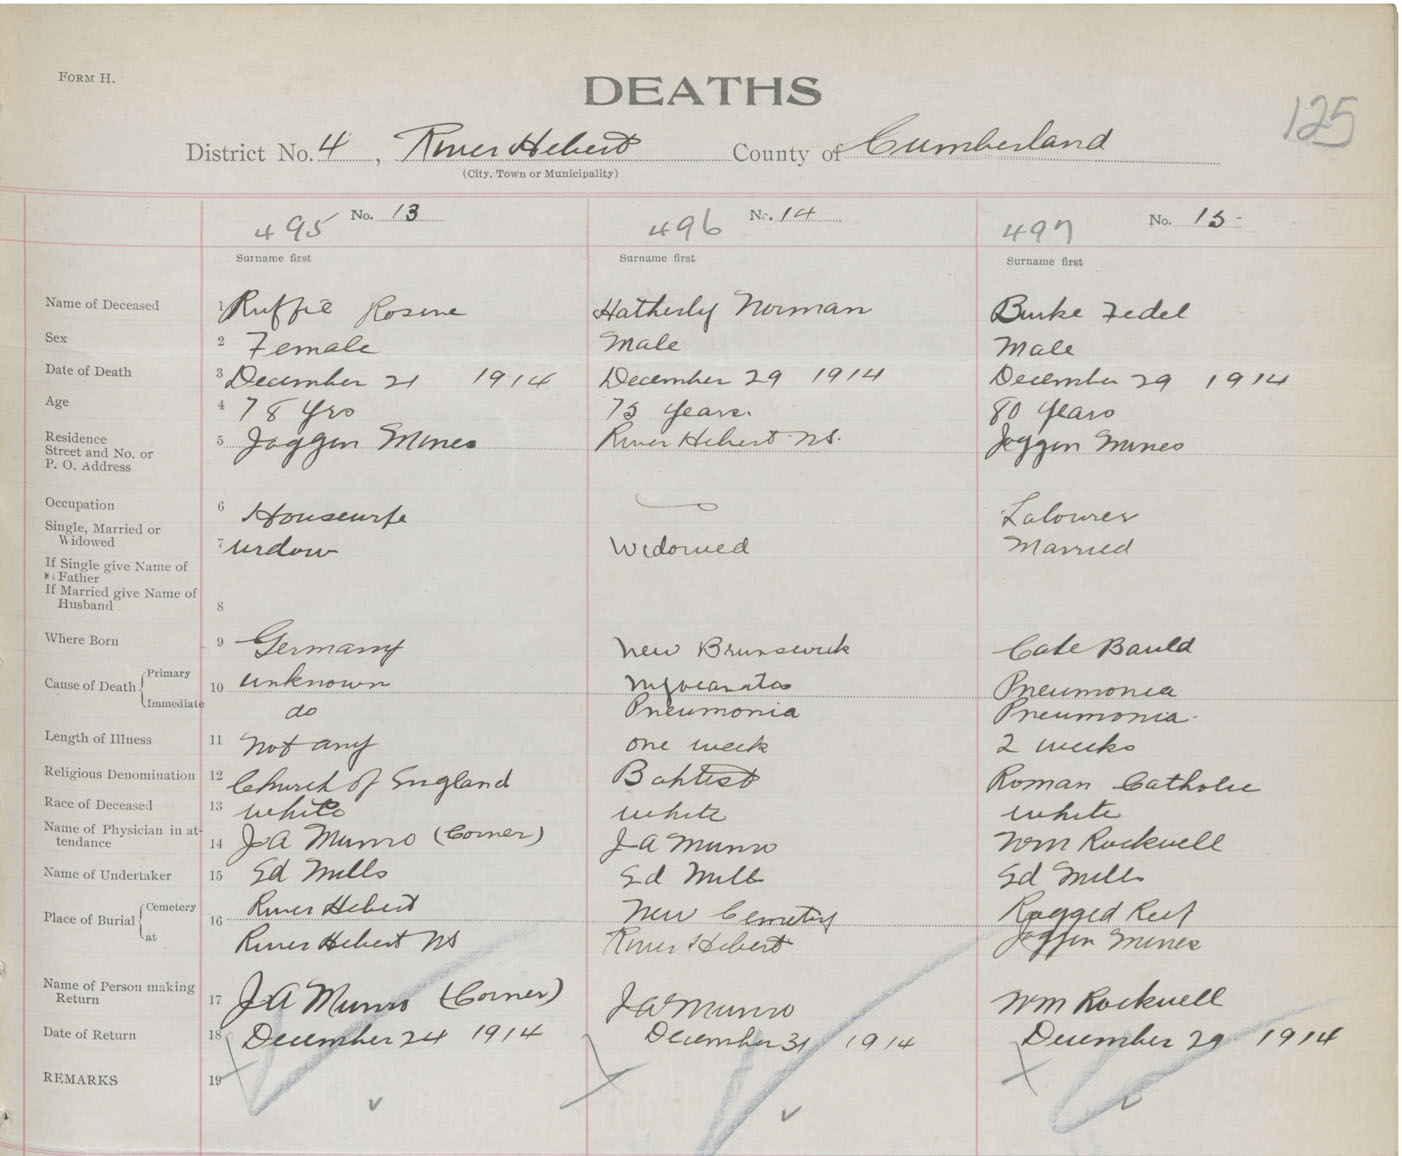 FORM H.
DEATHS
125
District No. 4, River Hebert County of Cumberland
(City, Town or Municipality)
495 No. 13 496 No. 14 497 No. 15
Surname first Surname first Surname first
Name of Deceased 1 Ruffie Rosine Hatherly Norman Burke Fedel
Sex 2 Female Male Male
Date of Death 3 December 21 1914 December 29 1914 December 29 1914
Age 4 78 yrs 75 years. 80 years
Residence
Street and No. or
P. O. Address 5 Joggin Mines River Hebert NS. Joggin Mines
Occupation 6 Housewife Labourer
Single, Married or
Widowed 7 widow Widowed Married
If Single give Name of
Father
If Married give Name of
Husband 8
Where Born 9 Germany New Brunswick Cate Bauld
Cause of Death Primary 10 unknown Pneumonia
Immediate do Pneumonia Pneumonia
Length of Illness 11 not any one week 2 weeks
Religious Denomination 12 Church of England Baptist Roman Catholic
Race of Deceased 13 white white white
Name of Physician in at-
tendance 14 J A Munro (Corner) J A Munro Wm Rockwell
Name of Undertaker 15 Ed Mills Ed Mills Ed Mills
Place of Burial Cemetery 16 River Hebert New Cemetery Ragged Reef
at River Hebert NS River Hebert Joggin Mines
Name of Person making
Return 17 J A Munro (Corner) J A Munro Wm Rockwell
Date of Return 18 December 24 1914 December 31 1914 December 29 1914
REMARKS 19